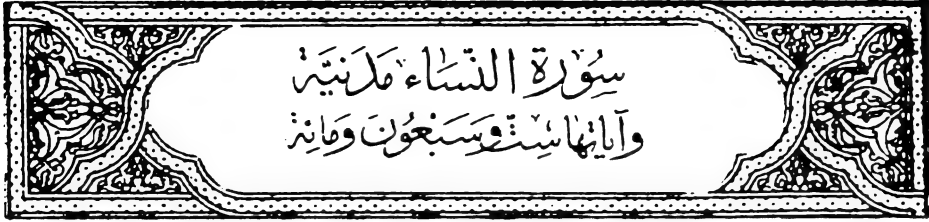 سُورَة النِّسَاء مَدَنيَّة
وَآيَاتهَا سِتّ وَسَبْعُونَ وَمائة